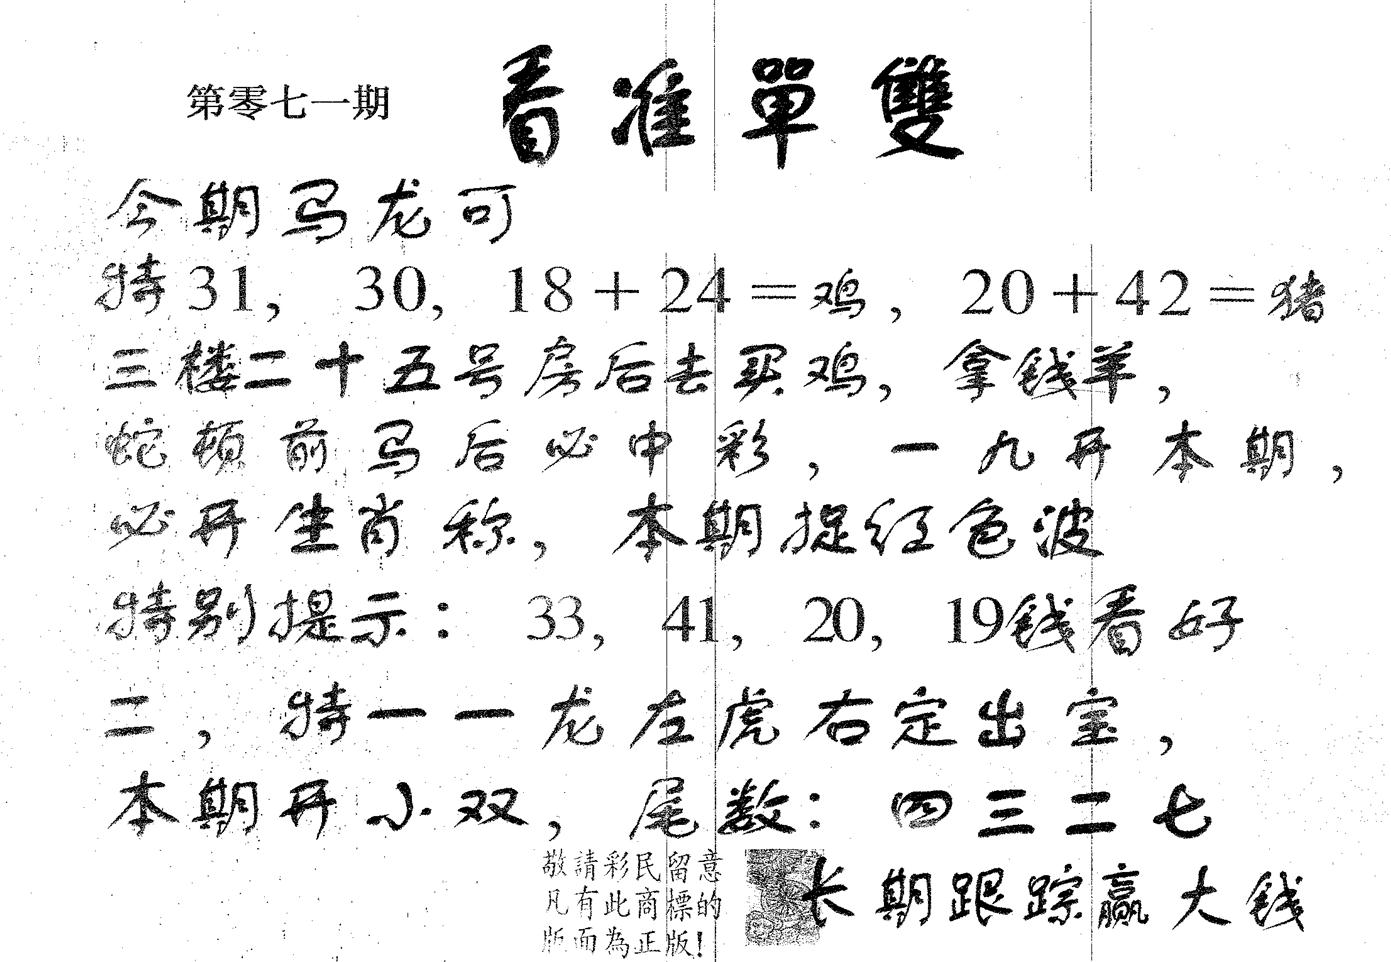 第零七一期 看准單雙
今期马龙可
特31, 30, 18+24=鸡, 20+42=猪
三楼二十五号房后去买鸡,拿钱羊,
蛇顿前马后必中彩,一九开本期,
必开生肖称,本期捉红色波
特别提示: 33, 41, 20, 19钱看好
二,特一一龙左虎右定出宝,
本期开小双,尾数:四三二七
敬請彩民留意
凡有此商標的
版面為正版!
长期跟踪赢大钱